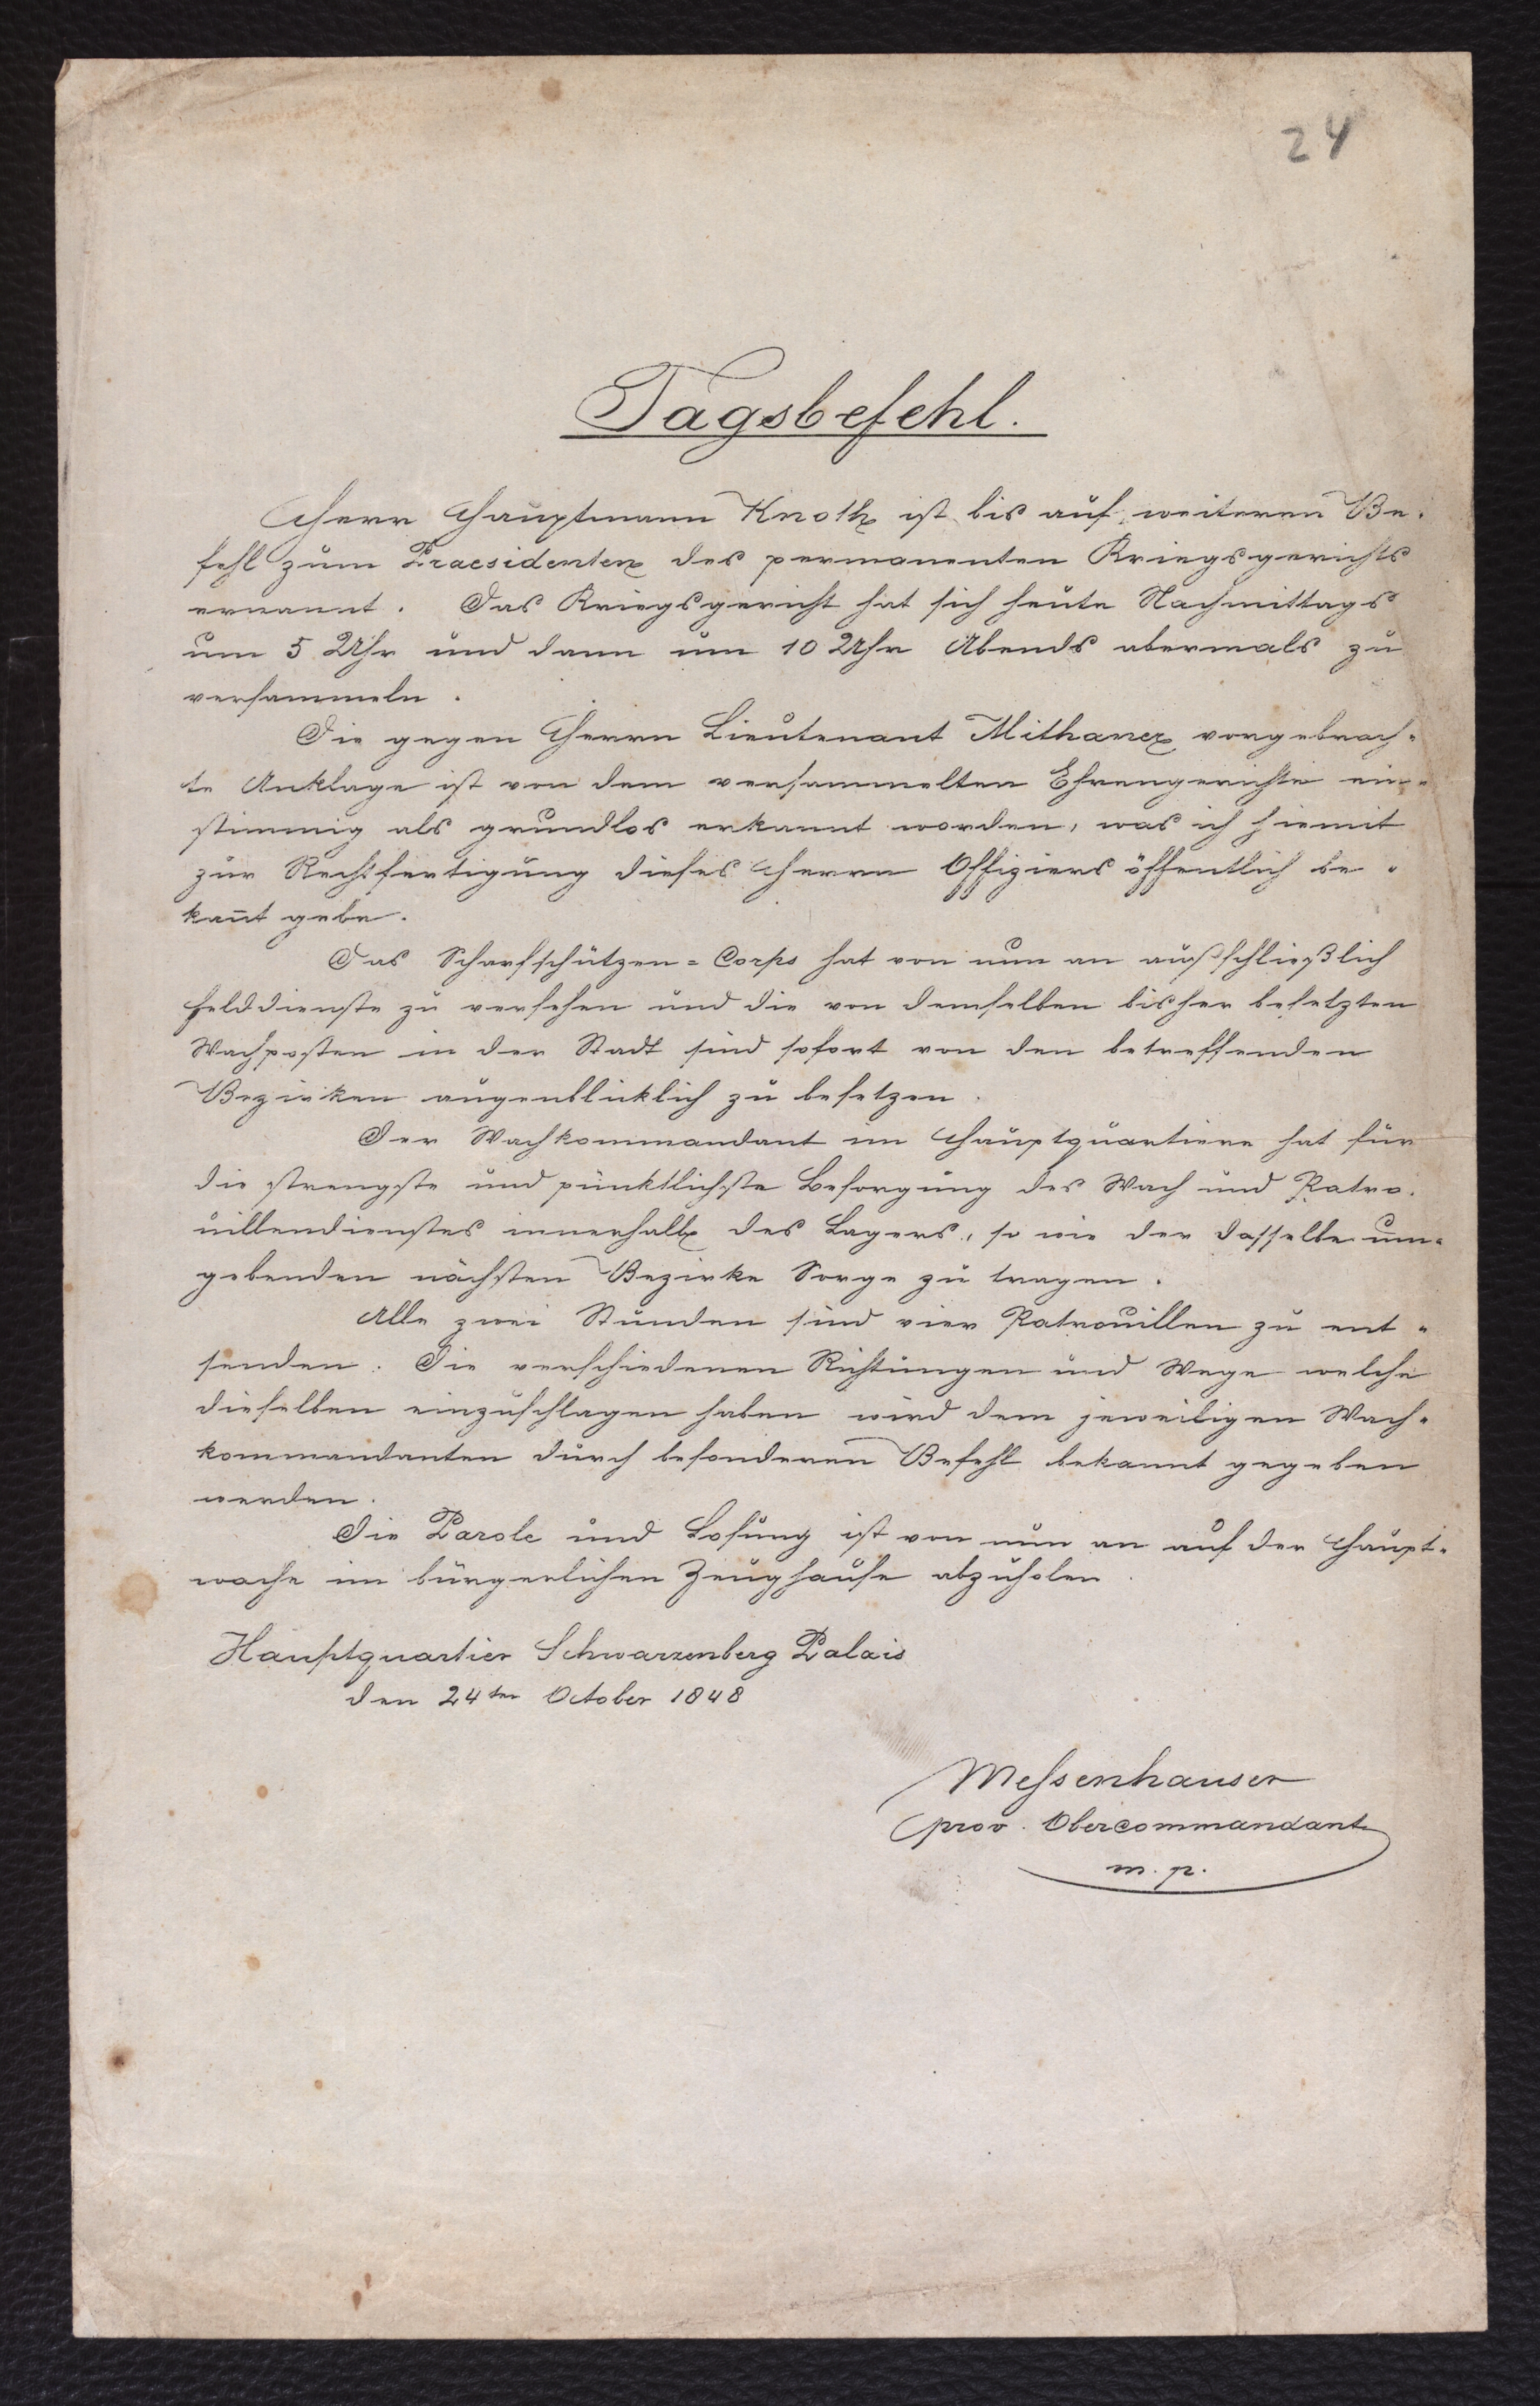 24
Tagsbefehl.
Herr Hauptmann Knoth ist bis auf weiteren Be-
fehl zum Praesidenten des permanenten Kriegsgerichts
ernannt. Das Kriegsgericht hat sich heute Nachmittags
um 5 Uhr und dann um 10 Uhr Abends abermals zu
versammeln.
Die gegen Herrn Lieutenant Mithaner vorgebrach-
te Anklage ist von dem versammelten Ehrengerichte ein-
stimmig als grundlos erkannt worden, was ich hiemit
zur Rechtfertigung dieses Herrn Offiziers öffentlich be-
kan̄t gebe.
Das Scharfschützen=Corps hat von nun an außschließlich
Felddienste zu versehen und die von demselben bisher besetzten
Wachposten in der Stadt sind sofort von den betreffenden
Bezirken augenblicklich zu besetzen.
Der Wachkommandant im Hauptquartiere hat für
die strengste und pünktlichste Besorgung des Wach und Patro-
uillendienstes innerhalb des Lagers, so wie der dasselbe um-
gebenden nächsten Bezirke Sorge zu tragen.
Alle zwei Stunden sind vier Patrouillen zu ent-
senden. Die verschiedenen Richtungen und Wege welche
dieselben einzuschlagen haben wird dem jeweiligen Wach-
kommandanten durch besonderen Befehl bekannt gegeben
werden.
Die Parole und Losung ist von nun an auf der Haupt-
wache im bürgerlichen Zeughause abzuholen.
Hauptquartier Schwarzenberg Palais
den 24ten October 1848
Messenhauser
prov. Obercommandant
m. p.